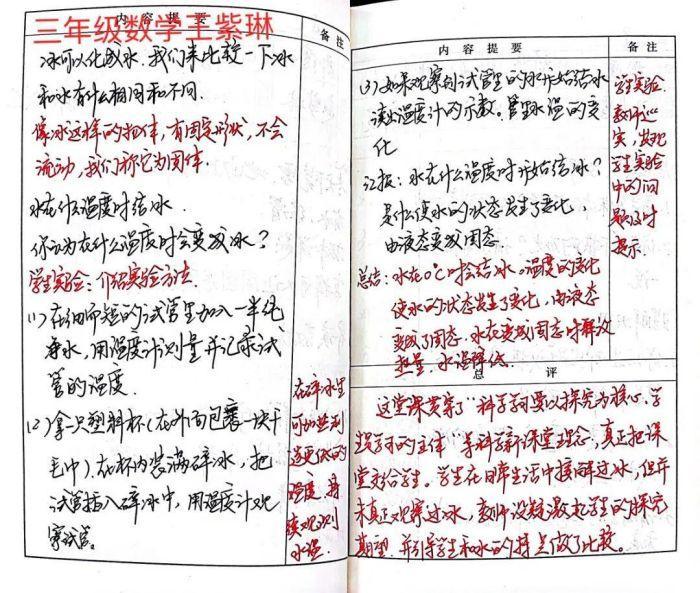 三年级数学王紫琳
内容提要
备注
冰可以化成水，我们来比较一下冰
和水有什么相同和不同.
像冰这样的物体，有固定形状，不会
流动，我们称它为固体.
水在什么温度时结冰.
你认为在什么温度时会变成冰？
学生实验：介绍实验方法.
(1) 在细而短的试管里加入一半纯
净水，用温度计测量并记录试
管的温度.
(2) 拿一只塑料杯(在外面包裹一块干
毛巾).在杯内装满碎冰，把
试管插入碎冰中，用温度计观
察试管。
在碎冰里
可以
更低的
温度，
续观测
水温.
内容提要
备注
(3) 如果观察到试管里的水开始结冰
读出温度计的示数。管里水温的变
化
汇报：水在什么温度时开始结冰？
是什么使水的状态发生了变化，
由液态变成固态
总结：水在0℃时会结冰.温度的变化
使水的状态发生了变化，由液态
变成了固态.水在变成固态时释放
热量，水温降低.
学生实验
教师巡
实，发现
学生实验
中的问
题及时
提示.
总评
这堂课贯穿了"科学学习要以探究为核心，学
生是学习的主体"等科学新课堂理念，真正把课
堂交给学生。学生在日常生活中接触过冰，但并
未真正观察过冰，教师设疑激起学生的探究
期望.并引导学生和水的特点做了比较。